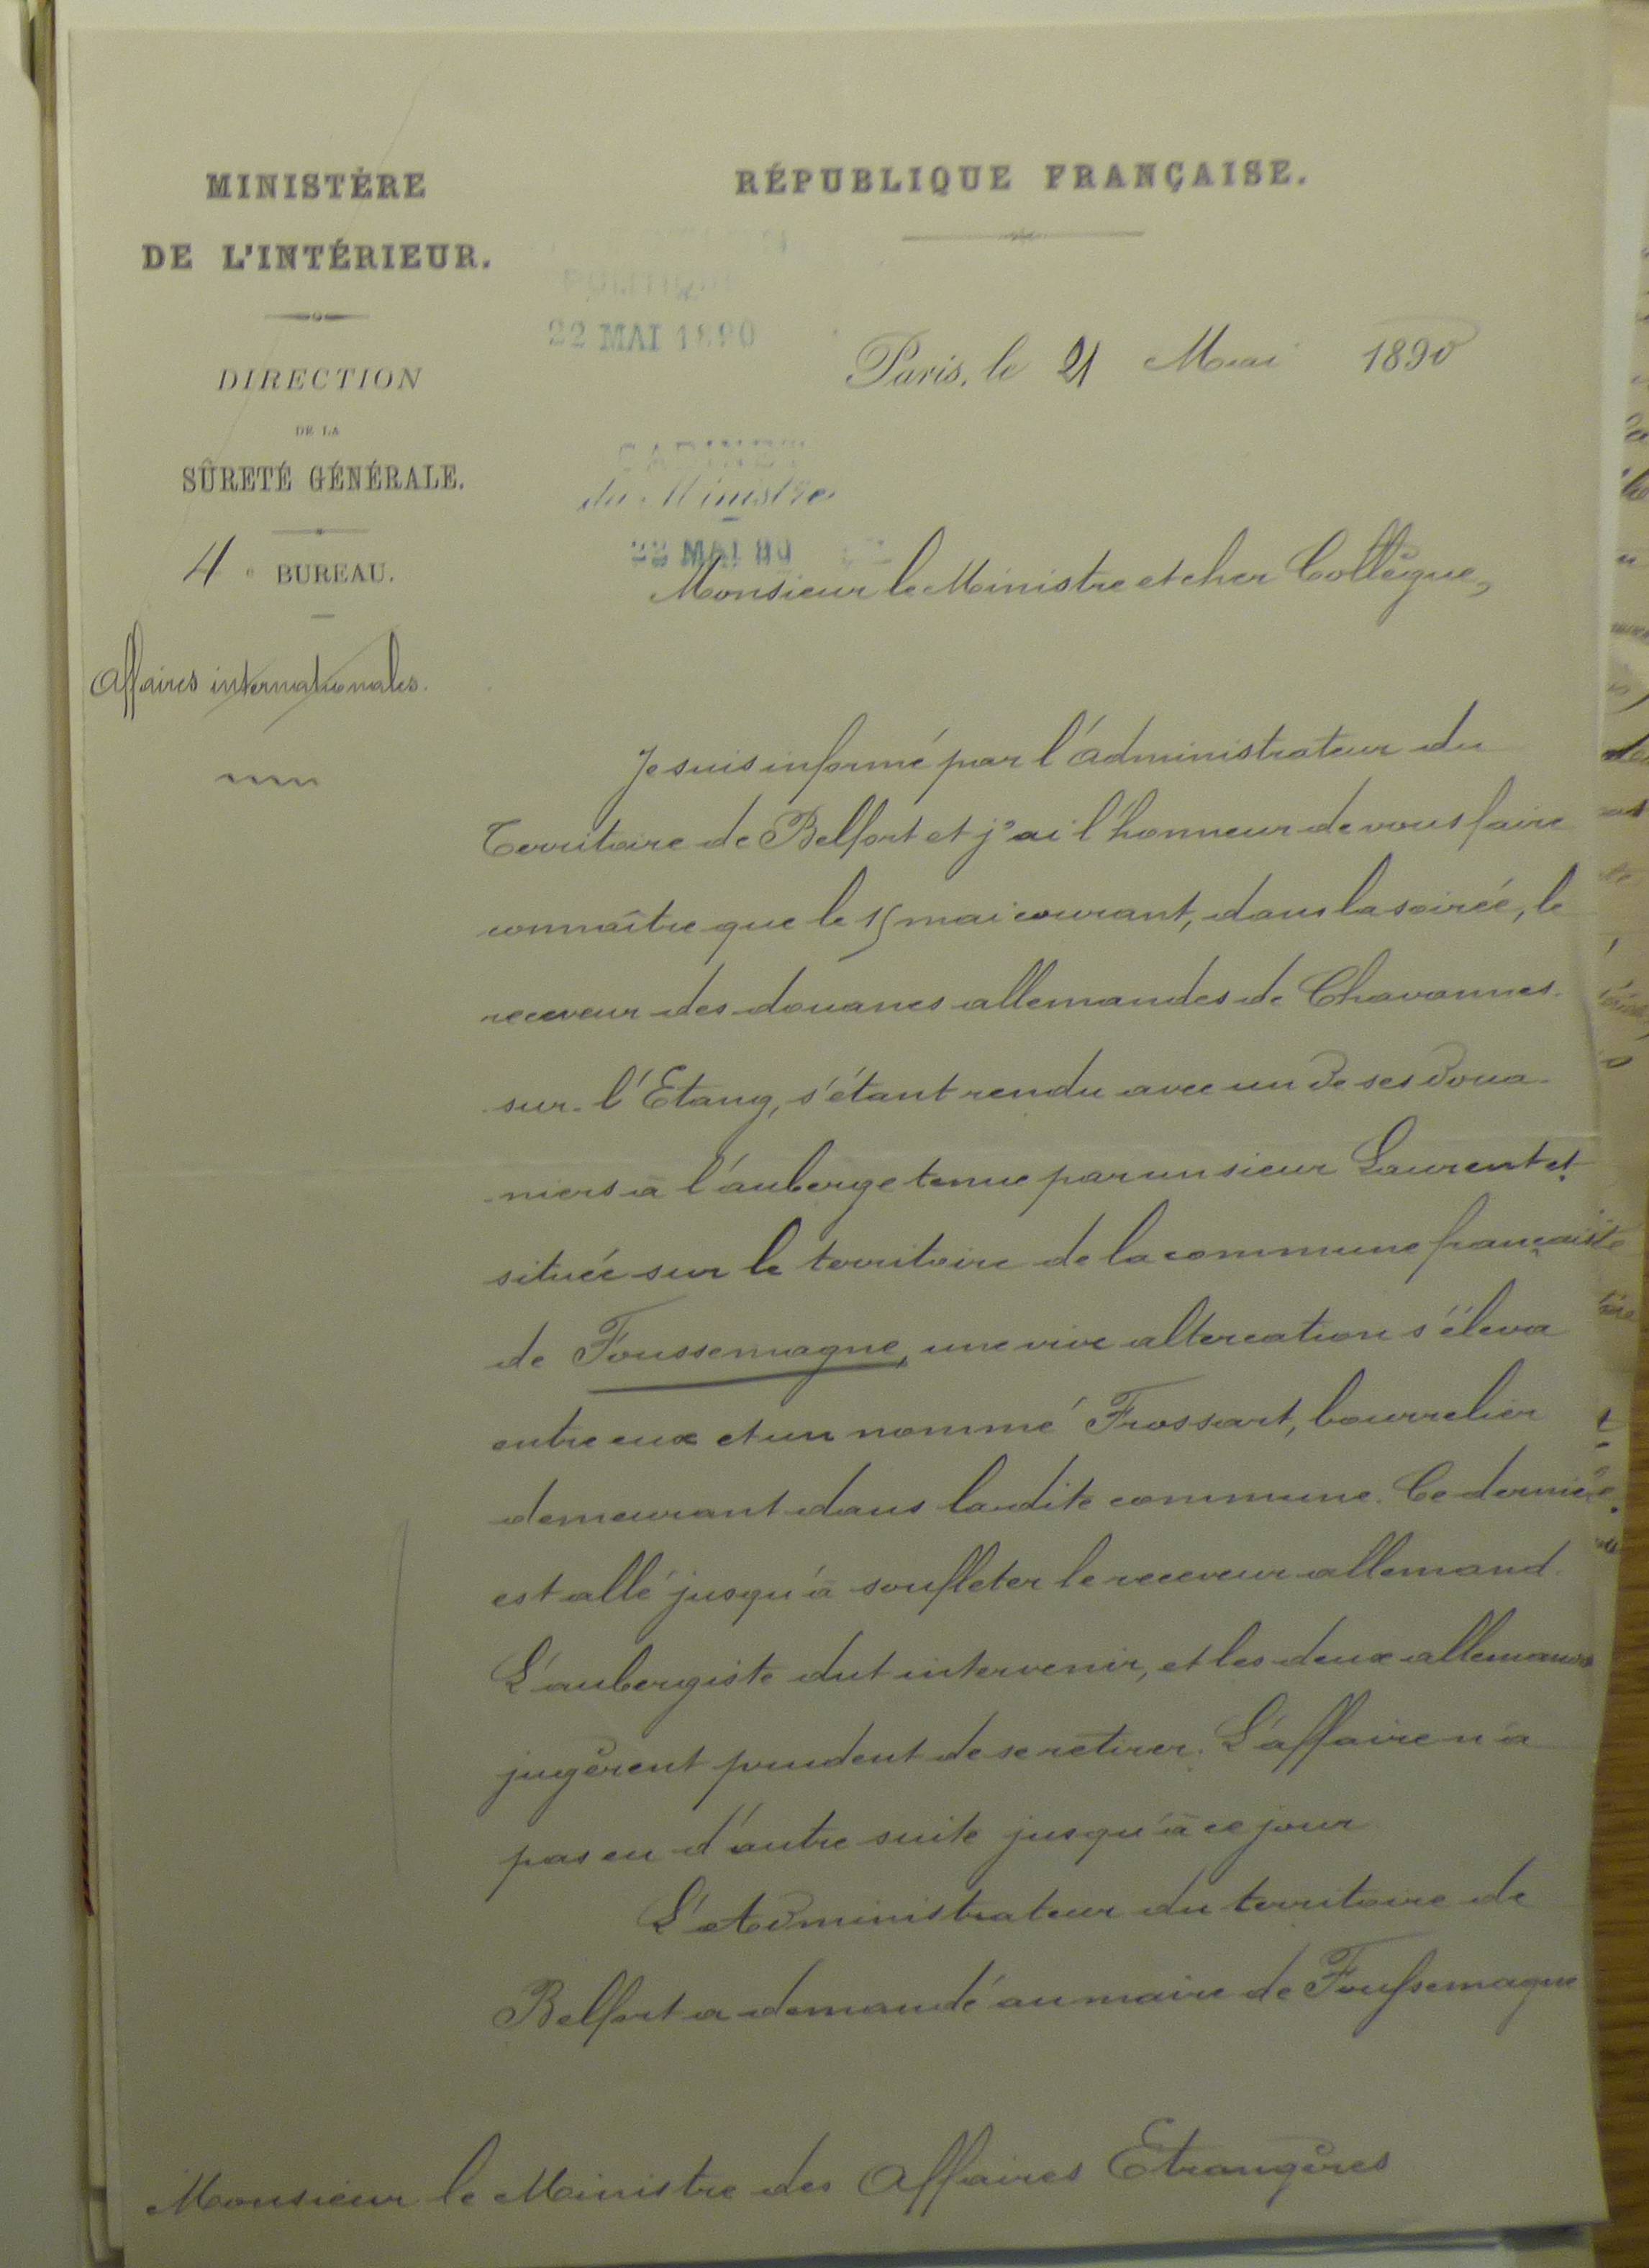 MINISTÈRE
DE L'INTÉRIEUR.
DIRECTION
DE LA
SÛRETÉ GÉNÉRALE.
4e BUREAU.
Affaires internationales.
RÉPUBLIQUE FRANÇAISE.
POLITIQUE
22 MAI 1890
Paris, le 21 Mai 1890
CABINET
du Ministre
22 MAI 90
Monsieur le Ministre et cher Collègue,
Je suis informé par l'administrateur du
Territoire de Belfort et j'ai l'honneur de vous faire
connaître que le 15 mai courant, dans la soirée, le
receveur des douanes allemandes de Chavannes-
sur-l'Etang, s'étant rendu avec un de ses doua-
niers à l'auberge tenue par un sieur Laurent et
située sur le territoire de la commune française
de Foussemagne, une vive altercation s'éleva
entre eux et un nommé Frossart, bourrelier
demeurant dans ladite commune. Ce dernier
est allé jusqu'à souffleter le receveur allemand.
L'aubergiste dut intervenir, et les deux allemands
jugèrent prudent de se retirer. L'affaire n'a
pas eu d'autre suite jusqu'à ce jour
L'Administrateur du territoire de
Belfort a demandé au maire de Foussemagne
Monsieur le Ministre des Affaires Etrangères